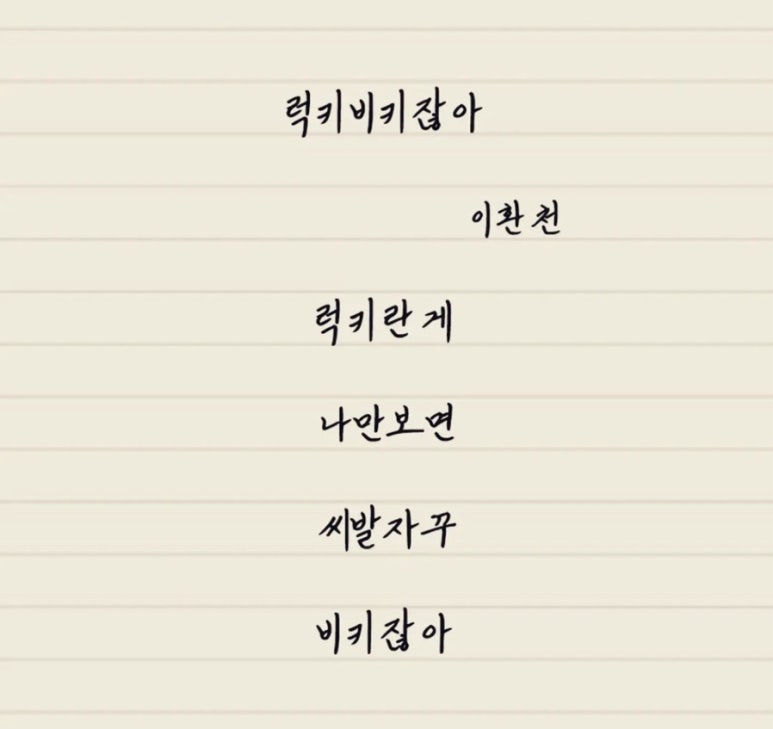 럭키비키잖아
이환천
럭키란게
나만보면
씨발자꾸
비키잖아